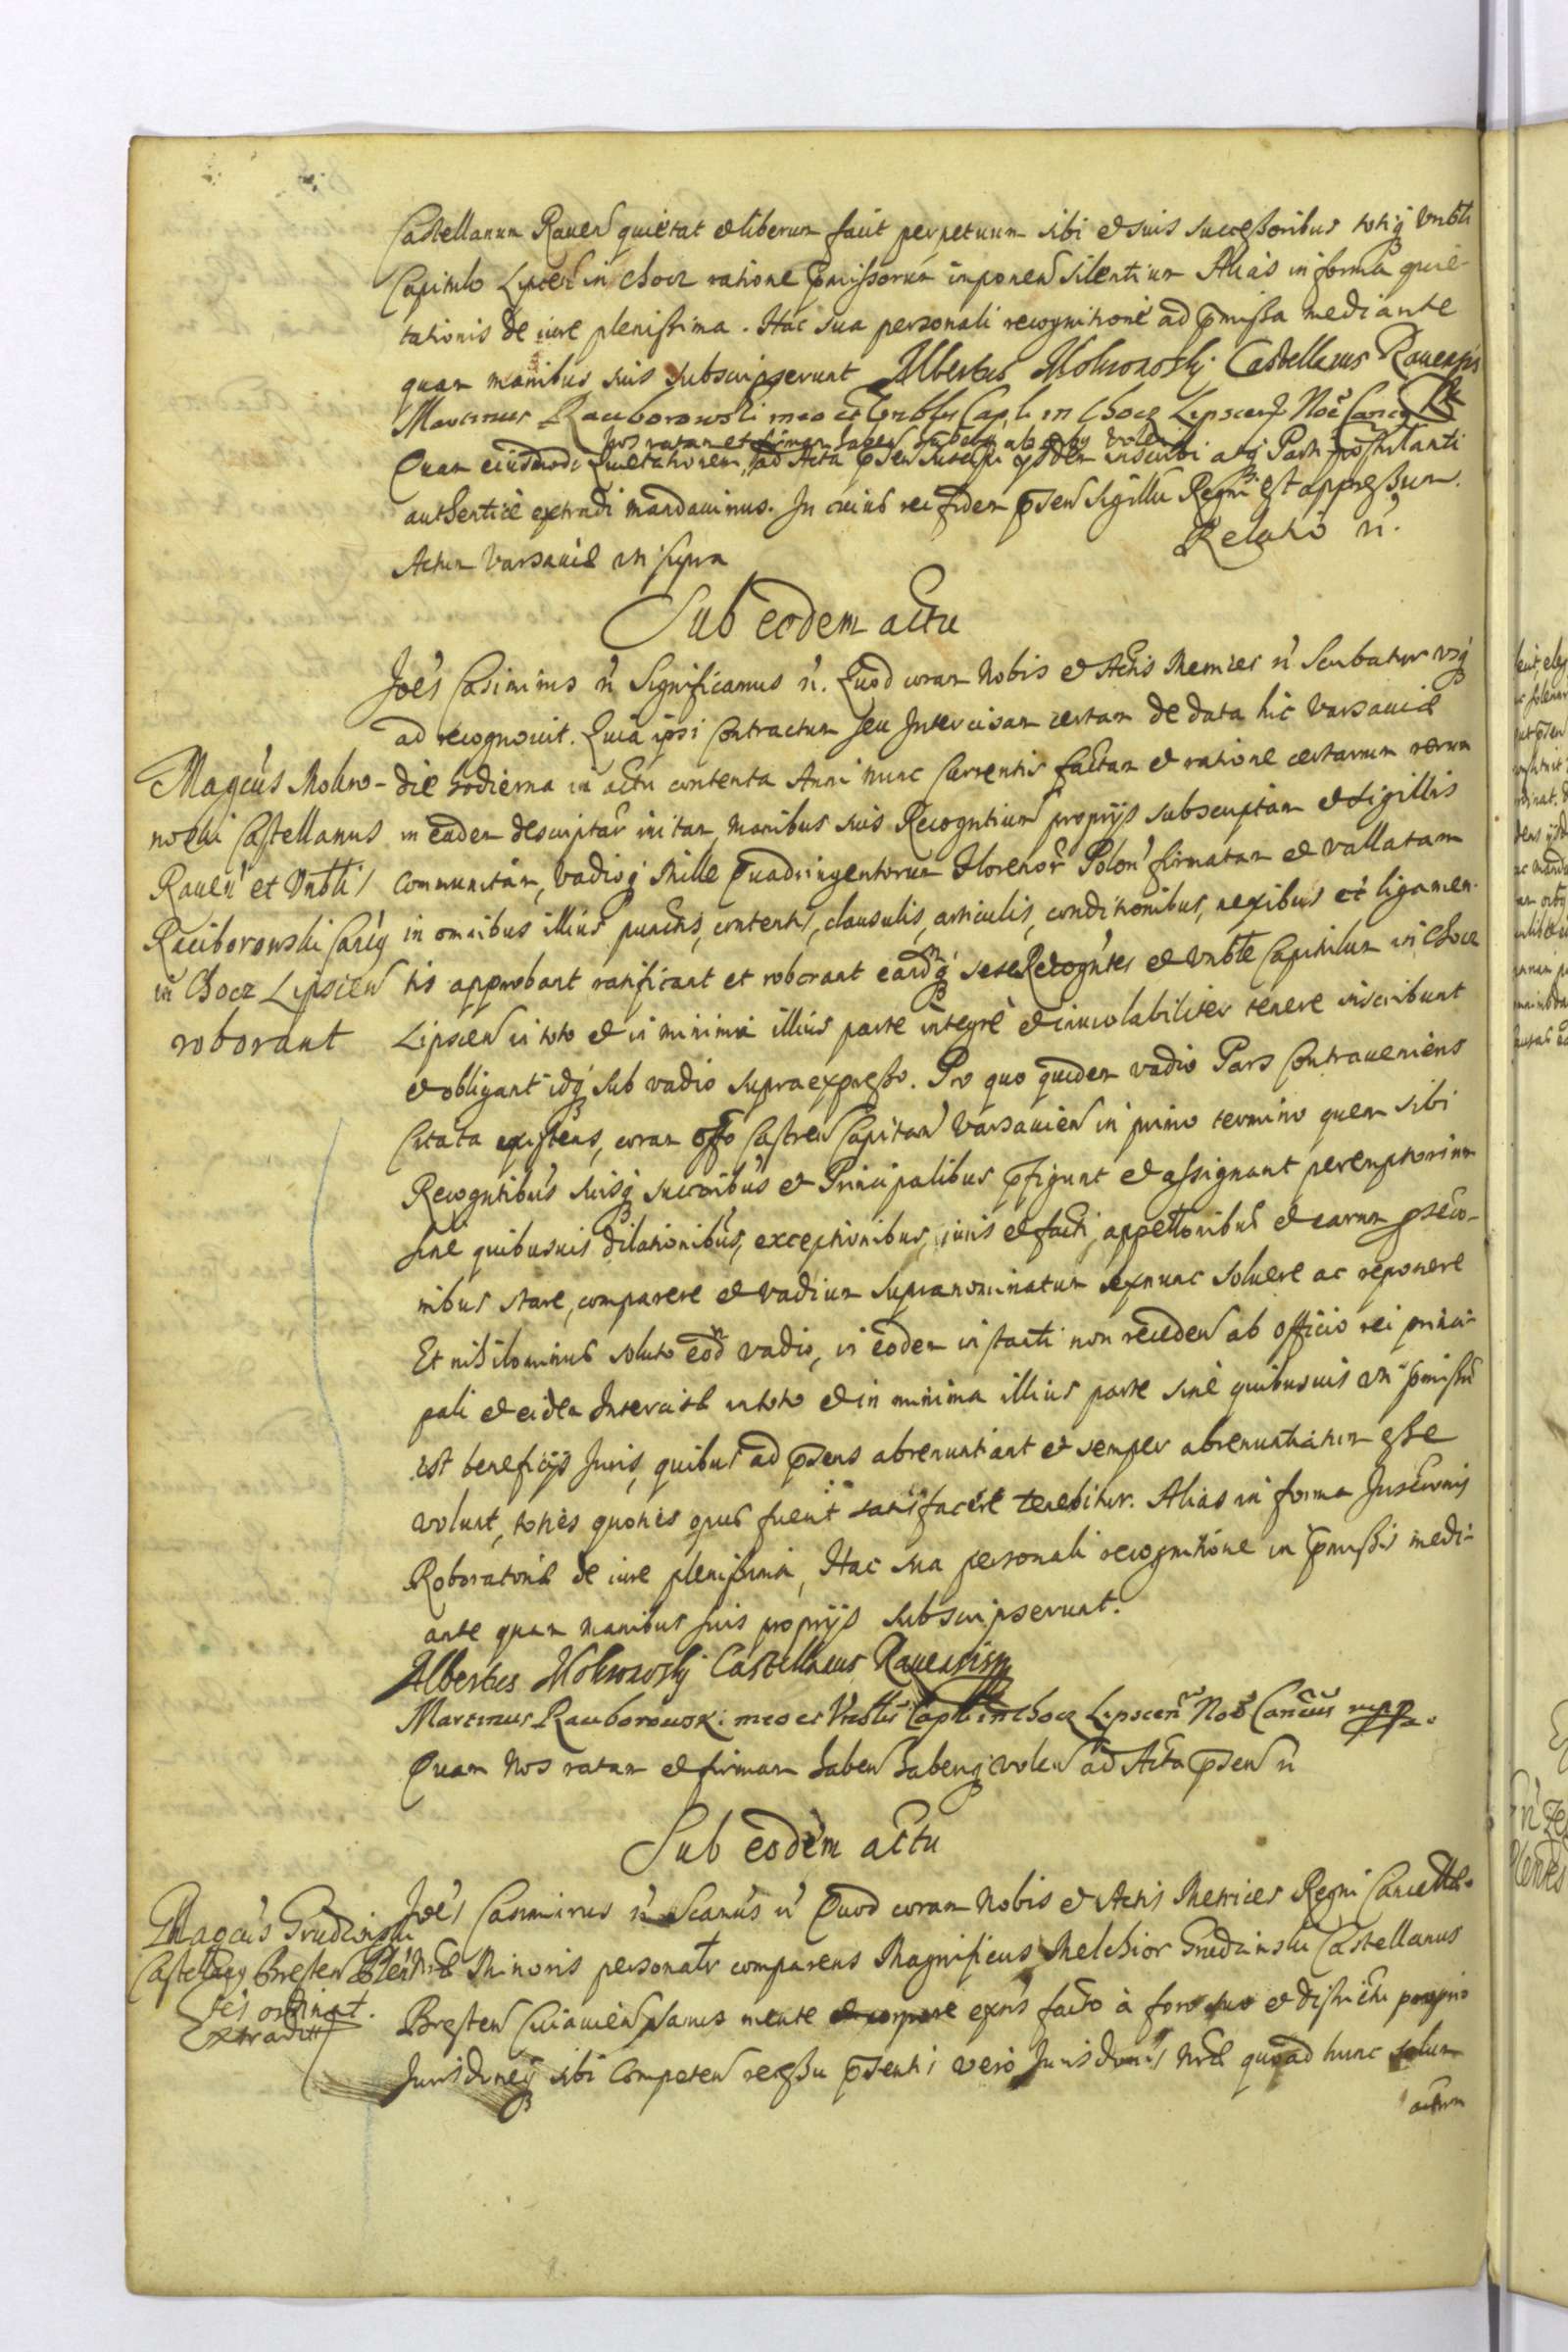 Castellanum Raven quietat et liberum facit perpetuum sibi et suis successoribus totiq Vnbli
Capitulo Lipscen in Chocz ratione pmissorum imponen silentium Alias in forma quie-
tationis de iure plenissima. Hac sua personali recognitione ad pmissa mediante
quam manibus suis subscripserunt Albertus Mokronoski Castellanus Ravensis
Martinus Raciborowski meo et Vnblis Capli in Chocz Lipscen Noe Cancus
nos ratam et firmam haben haberiq ab volen
Quam eiusmodi Quietationem, ad Acta psen suscipi ysdem inscribi atq Parti postulanti
authentice extradi mandavimus. In cuius rei fidem psen Sigillu Regni est appressum.
Actum Varsaviae uti supra
Relatio n.
Sub eodem actu
Joes Casimirus n Significamus n. Quod coram Nobis et Actis Metrices n Scribatur usq
ad recognovit. Quia ipsi Contractum seu Intercisam certam de data hic Varsaviae
Magcus Mokro-
noski Castellanus
Raven et Vnbli
Raciborowski Cancq
in Chocz Lipscien
roborant
die hodierna in actu contenta Anni nunc Currentis factam et ratione certarum rerum
in eadem descriptar initam, manibus suis Recogntium proprijs subscriptam et sigillis
Communitam, Vadioq Mille Quadringentorum Florenor Polon firmatam et vallatam
in omnibus illius punctis, contentis, clausulis, articulis, conditionibus, nexibus et ligamen-
tis approbant ratificant et roborant eandq sese Recogntes et Vnble Capitulum in Chocz
Lipscen in toto et in minima illius parte integre et inviolabiliter tenere inscribunt
et obligant idq sub vadio supraexpresso. Pro quo quidem vadio Pars Contraveniens
Citata existens, coram Offo Castren Capitan Varsavien in primo termino quem sibi
Recogntibus suisq succoribus et Principalibus pfigunt et assignant peremptorium
sine quibusvis dilationibus, exceptionibus, iuris et facti, appellonibus et earum psecu-
nibus stare, comparere et vadium supranominatum exnunc solvere ac reponere
Et nihilominus soluto eod vadio, in eodem instanti non receden ab officio rei princi-
pali et eidem Intercisae in toto et in minima illius parte sine quibusvis uti pmissu
est beneficijs Juris, quibus ad psens abrenuntiant et semper abrenuntiatum esse
volunt, toties quoties opus fuerit satisfacere tenebitur. Alias in forma Inscronis
Roboratoriae de iure plenissima, Hac sua personali recognitione in pmissis medi-
ante quam manibus suis proprijs subscripserunt.
Albertus Mokronoski Castellanus Ravensis mp
Martinus Raciborowski meo et Vnblis Capli in Chocz Lipscen Noe Cancus mpp.
Quam nos ratam et firmam haben haberiq volen ad Acta psen n
Sub eodem actu
Magcus Grudzinski
Castellanq Bresten
ordinat.
Extradit
Joes Casimirus n Scamus n Quod coram Nobis et Actis Metrices Regni Cancella-
riae Minoris personatr comparens Magnificus Melchior Grudzinski Castellanus
Bresten Cuiavien sanus mente et corpore exns facto à foro suo et districtu proprio
Jurisdoneq sibi competen recessu psenti vero Jurisdonis nrae quoad hunc solum
actum